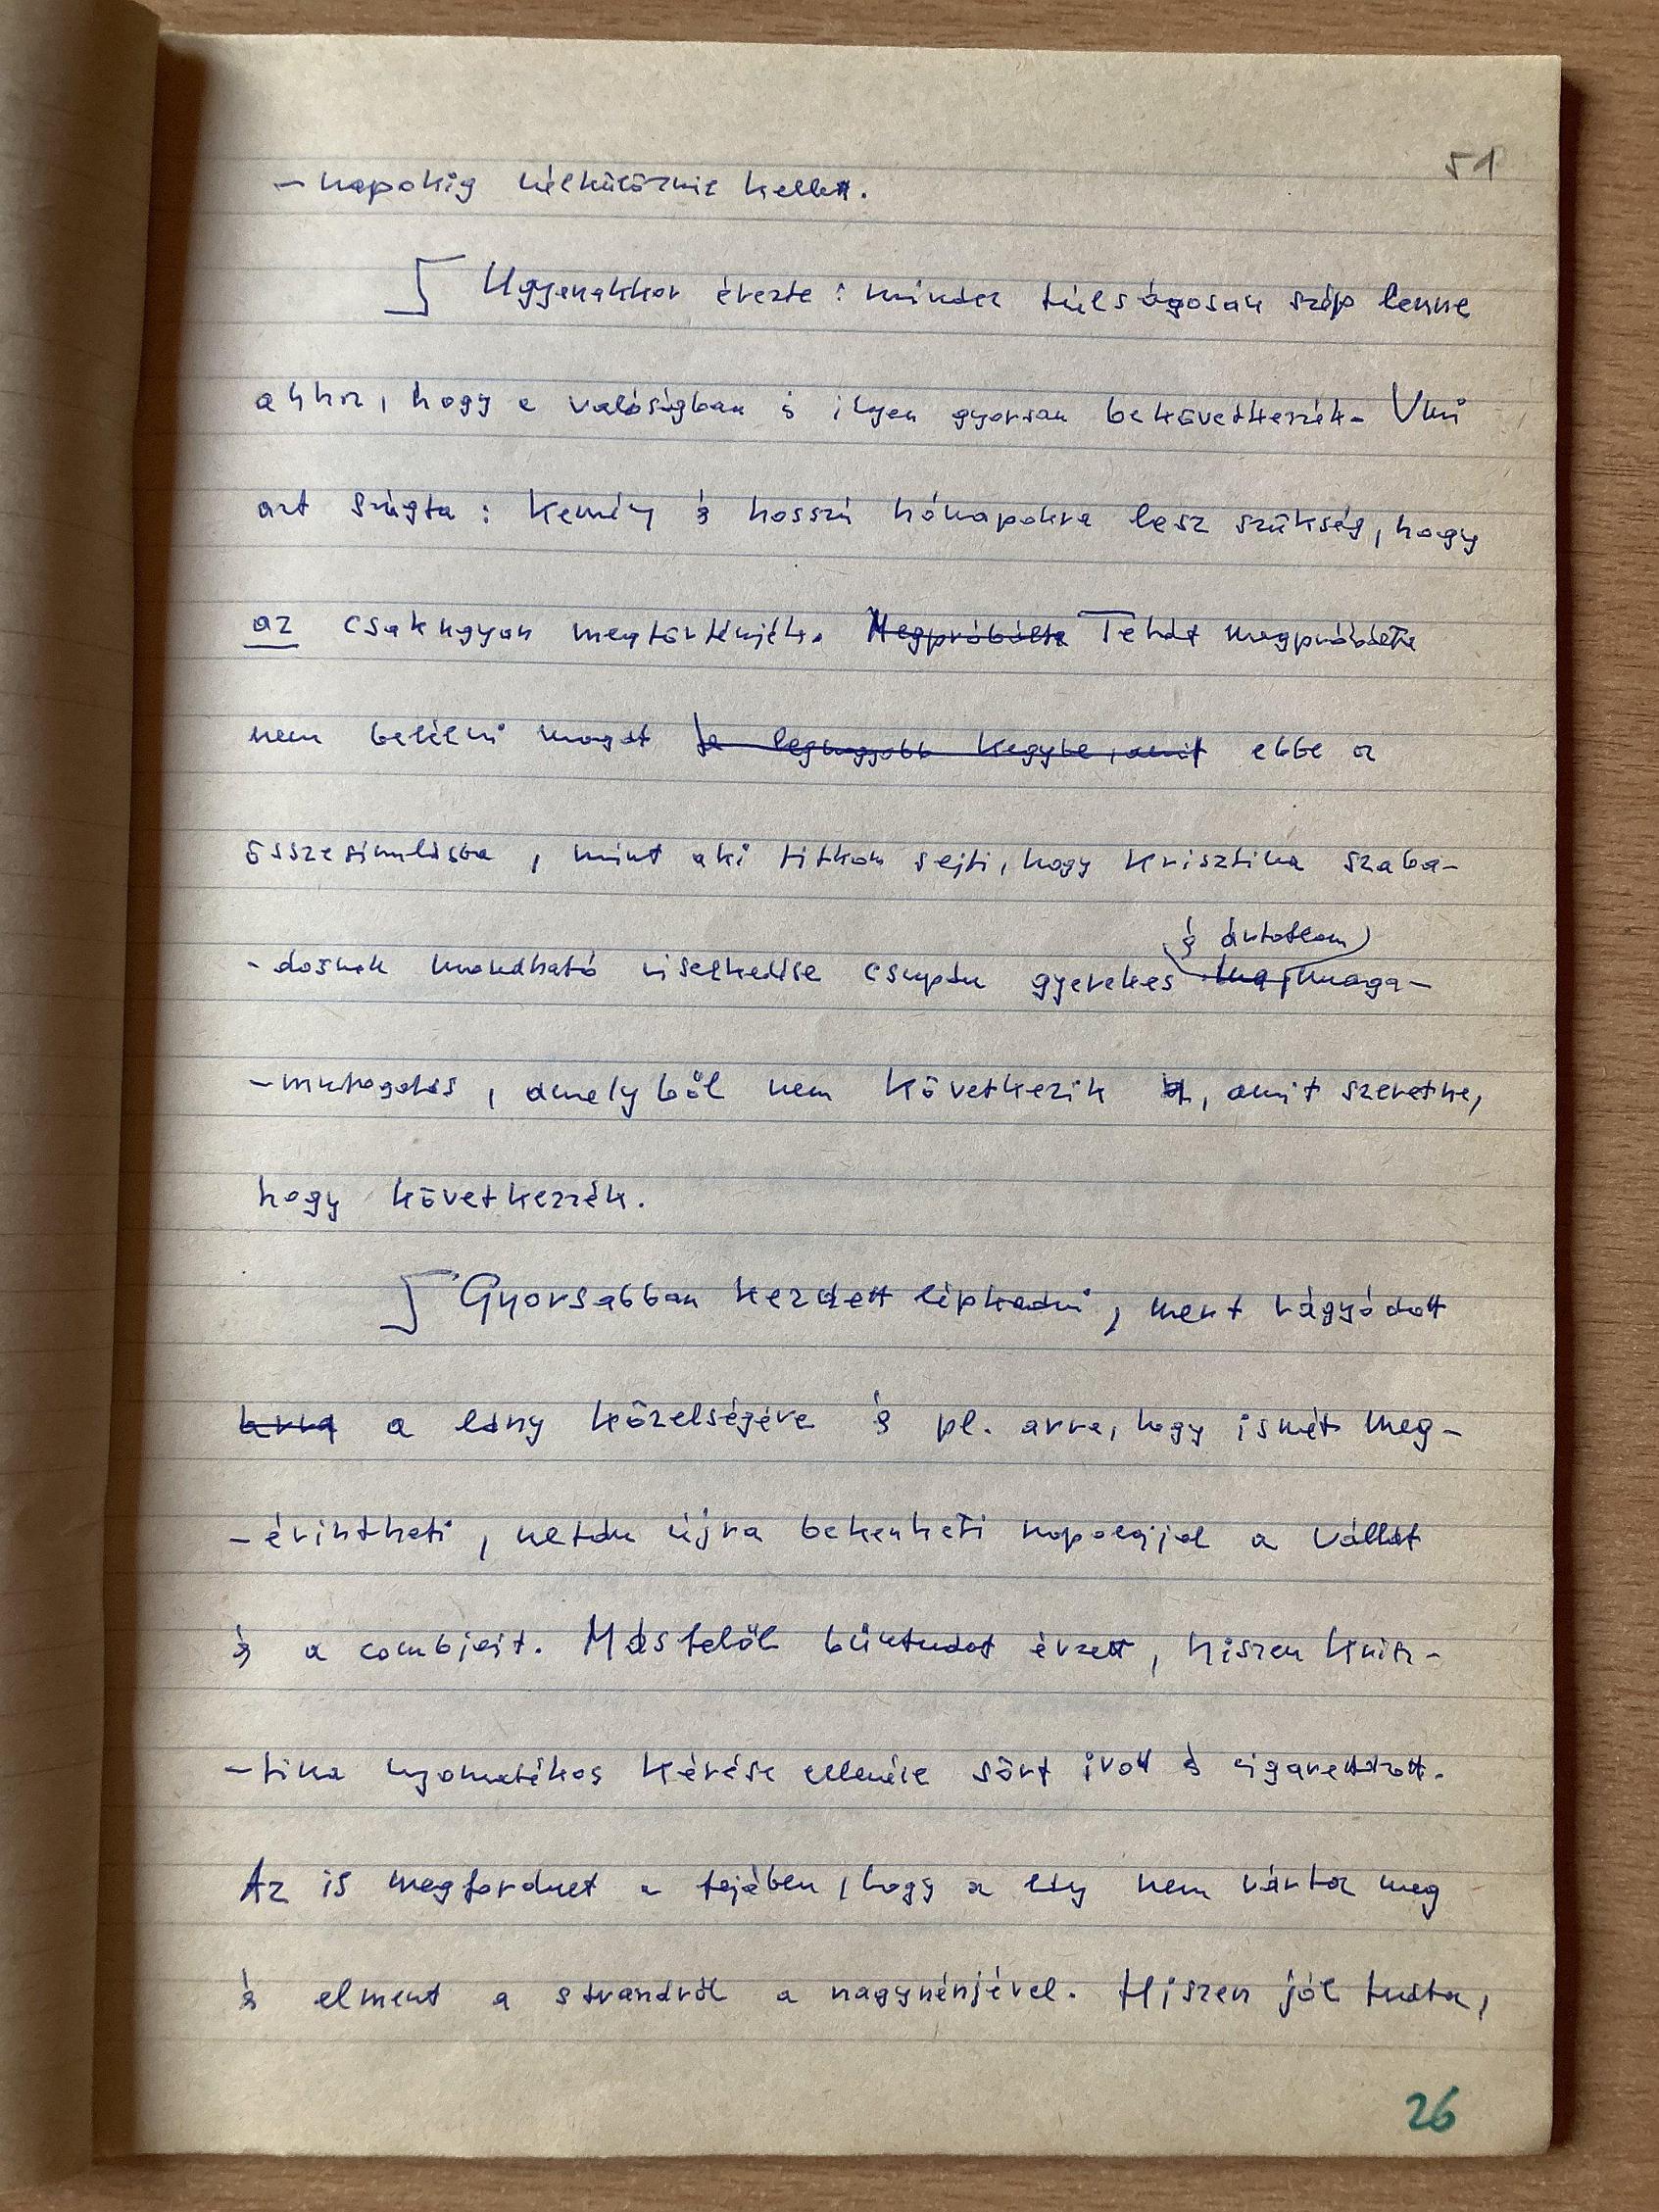 51
- napokig nélkülöznie kellett.
Ugyanakkor érezte: mindez túlságosan szép lenne
ahhoz, hogy a valóságban is ilyen gyorsan bekövetkezzék. Vmi
azt súgta: kemény és hosszú hónapokra lesz szükség, hogy
az csakugyan megtörténjék. Megpróbálta Tehát megpróbálta
nem beleélni magát be legnagyobb kegybe, amit ebbe a
összesimulásba, mint aki titkon sejti, hogy Krisztina szaba-
és ártatlan
- dosnak mondható viselkedése csupán gyerekes maga-
- mutogatás, amelyből nem következik az, amit szeretne,
hogy következzék.
Gyorsabban kezdett lépkedni, mert vágyódott
arra a lány közelségére és pl. arra, hogy ismét meg-
- érintheti, netán újra bekenheti napolajjal a vállát
és a combjait. Másfelől bűntudat érzett, hiszen Krisz-
- tina nyomatékos kérése ellenére sört ivott és cigarettázott.
Az is megfordult a fejében, hogy a lány nem várta meg
és elment a strandról a nagynénjével. Hiszen jól tudta,
26